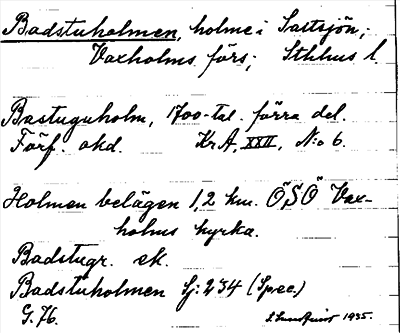 Badstuholmen, holme i Saltsjön,
Vaxholms förs; Sthlms l
Bastuguholm, 1700-tal. förra del.
Förf. okd. Kr A, XXII, N:o 6.
Holmen belägen 1,2 km. ÖSÖ Vax-
holms kyrka.
Badstugr. ek.
Badstuholmen Sj: 234 (Spec.)
G. 76. S. Lundqvist 1935.